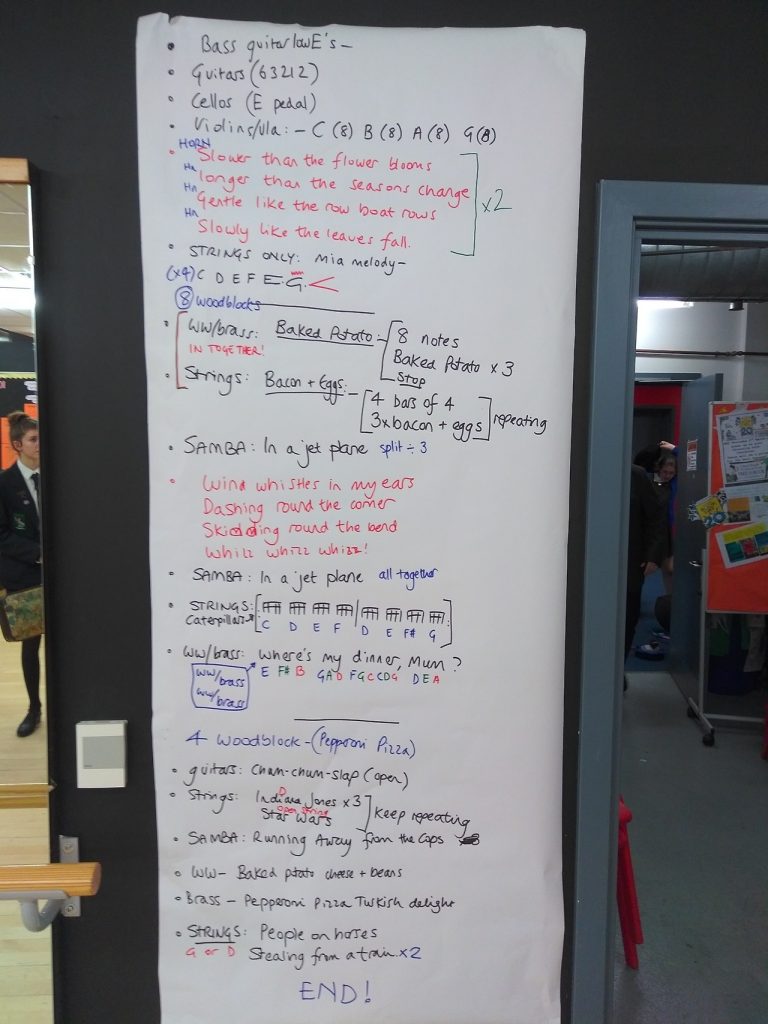 • Bass guitar low E's –
• Guitars (63212)
• Cellos (E pedal)
• Violins/vla: – C (8) B (8) A (8) G (8)
HORN
• Slower than the flower blooms
Hn longer than the seasons change
Hn Gentle like the row boat rows
Hn Slowly like the leaves fall.
x2
• STRINGS ONLY: mia melody –
(x4) C D E F E G <
8 woodblocks
• WW/brass: Baked Potato: – 8 notes
IN TOGETHER!
Baked Potato x 3
Stop
• Strings: Bacon + Eggs: – 4 bars of 4
3x bacon + eggs
repeating
• SAMBA: In a jet plane split ÷ 3
• Wind whistles in my ears
Dashing round the corner
Skidding round the bend
Whizz whizz whizz!
• SAMBA: In a jet plane all together
• STRINGS:
Caterpillars
C D E F D E F# G
• WW/brass: Where's my dinner, Mum?
E F# B G A D F G C C D G D E A
WW/brass
WW/brass
4 Woodblock – (Pepperoni Pizza)
• guitars: Chum-chum-slap (open)
• Strings: Indiana Jones x 3
D
open string
Star Wars
Keep repeating
• SAMBA: Running Away from the Cops
• WW – Baked potato cheese + beans
• Brass – Pepperoni Pizza Turkish delight
• STRINGS: People on horses
G or D Stealing from a train x2
END!